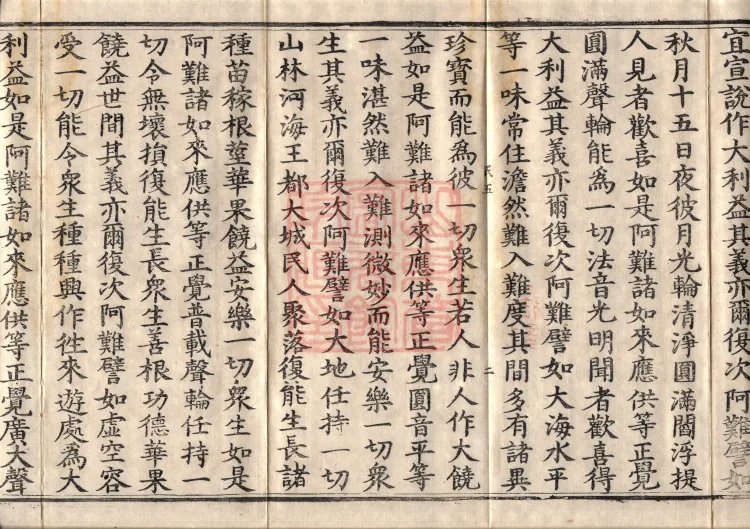 宜宣說作大利益其義亦爾復次阿難譬如
秋月十五日夜彼月光輪清淨圓滿閻浮提
人見者歡喜如是阿難諸如來應供等正覺
圓滿聲輪能為一切法音光明聞者歡喜得
大利益其義亦爾復次阿難譬如大海水平
等一味常住澹然難入難度其間多有諸異
珍寶而能為彼一切衆生若人非人作大饒
益如是阿難諸如來應供等正覺圓音平等
一味湛然難入難測微妙而能安樂一切衆
生其義亦爾復次阿難譬如大地任持一切
山林河海王都大城民人聚落復能生長諸
種苗稼根莖華果饒益安樂一切衆生如是
阿難諸如來應供等正覺普載聲輪任持一
切令無壞損復能生長衆生善根功德華果
饒益世間其義亦爾復次阿難譬如虛空容
受一切能令衆生種種興作徃來遊處為大
利益如是阿難諸如來應供等正覺廣大聲
二